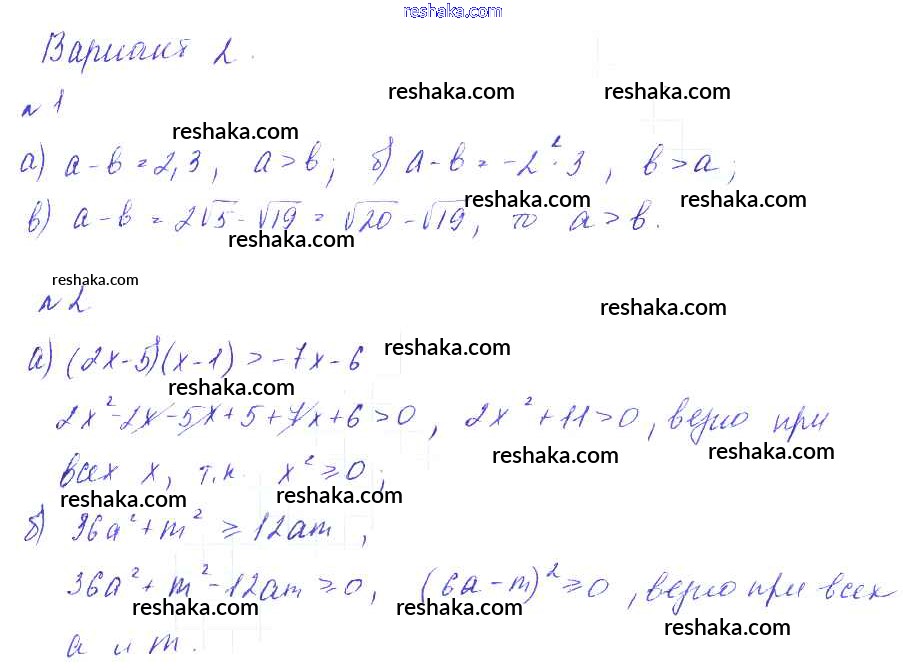 reshaka.com
Вариант 2.
reshaka.com reshaka.com
№1
reshaka.com
а) a-b=2,3, a>b; б) a-b=-2²·3, b>a;
reshaka.com reshaka.com
в) a-b=2√5-√19=√20-√19, то a>b.
reshaka.com
reshaka.com
№2
reshaka.com
а) (2x-5)(x-1)>-7x-6
reshaka.com
reshaka.com
2x²-2x-5x+5+7x+6>0, 2x²+11>0, верно при
reshaka.com reshaka.com
всех x, т.к. x²≥0;
reshaka.com reshaka.com
б) 36a²+m²≥12am,
36a²+m²-12am≥0, (6a-m)²≥0, верно при всех
reshaka.com reshaka.com
reshaka.com
a и m.